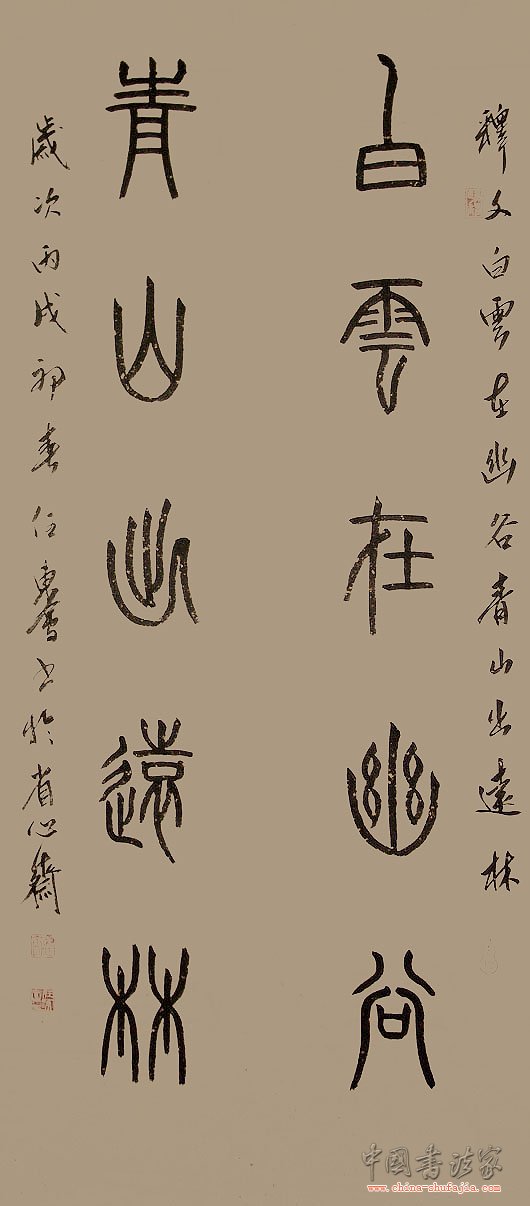 釋文白雲在幽谷青山出遠林
白雲在幽谷
青山出遠林
歲次丙戌初春任東雪書於省心齋
中國書法家
www.china-shufajia.com